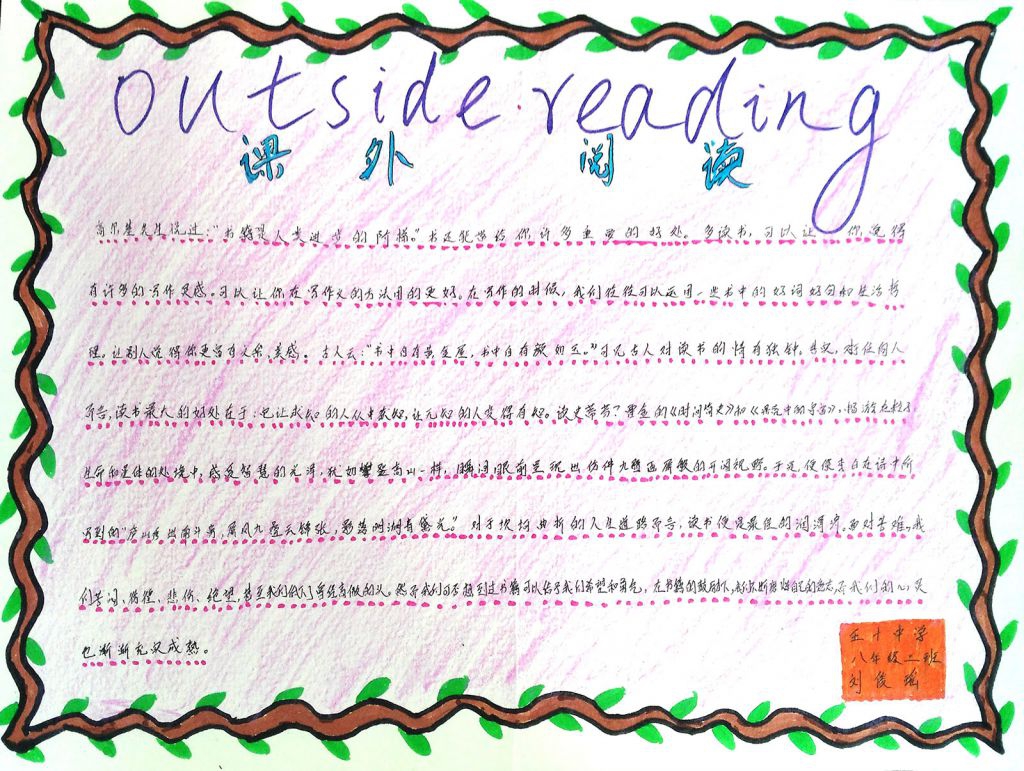 outside reading
课外阅读
高尔基先生说过:"书籍是人类进步的阶梯。"书还能带给你许多重要的好处。多读书,可以让你觉得
有许多的写作灵感。可以让你在写作文的方法用的更好。在写作的时候,我们往往可以运用一些书中的好词好句和生活哲
理。让别人觉得你更富有文采、美感。古人云:"书中自有黄金屋,书中自有颜如玉。"可见古人对读书的情有独钟。其实,对任何人
而言,读书最大的好处在于:它让求知的人从中获知,让无知的人变得有知。读史蒂芬?霍金的《时间简史》和《果壳中的宇宙》,畅游在粒子、
生命和星体的处境中,感受智慧的光泽,犹如攀登高山一样,瞬间眼前呈现出仿佛九叠画屏般的开阔视野。于是,便像李白在诗中所
写到的"庐山秀出南斗旁,屏风九叠云锦张,影落明湖青黛光。"对于坎坷曲折的人生道路而言,读书便是最佳的润滑济。面对苦难,我
们苦闷、彷徨、悲伤、绝望,甚至我们低下了曾经高傲的头。然而我们可否想到过书籍可以给予我们希望和勇气,在书籍的鼓励下,我们的心灵
也渐渐充实成熟。
五十中学
八年级二班
刘俊瑶